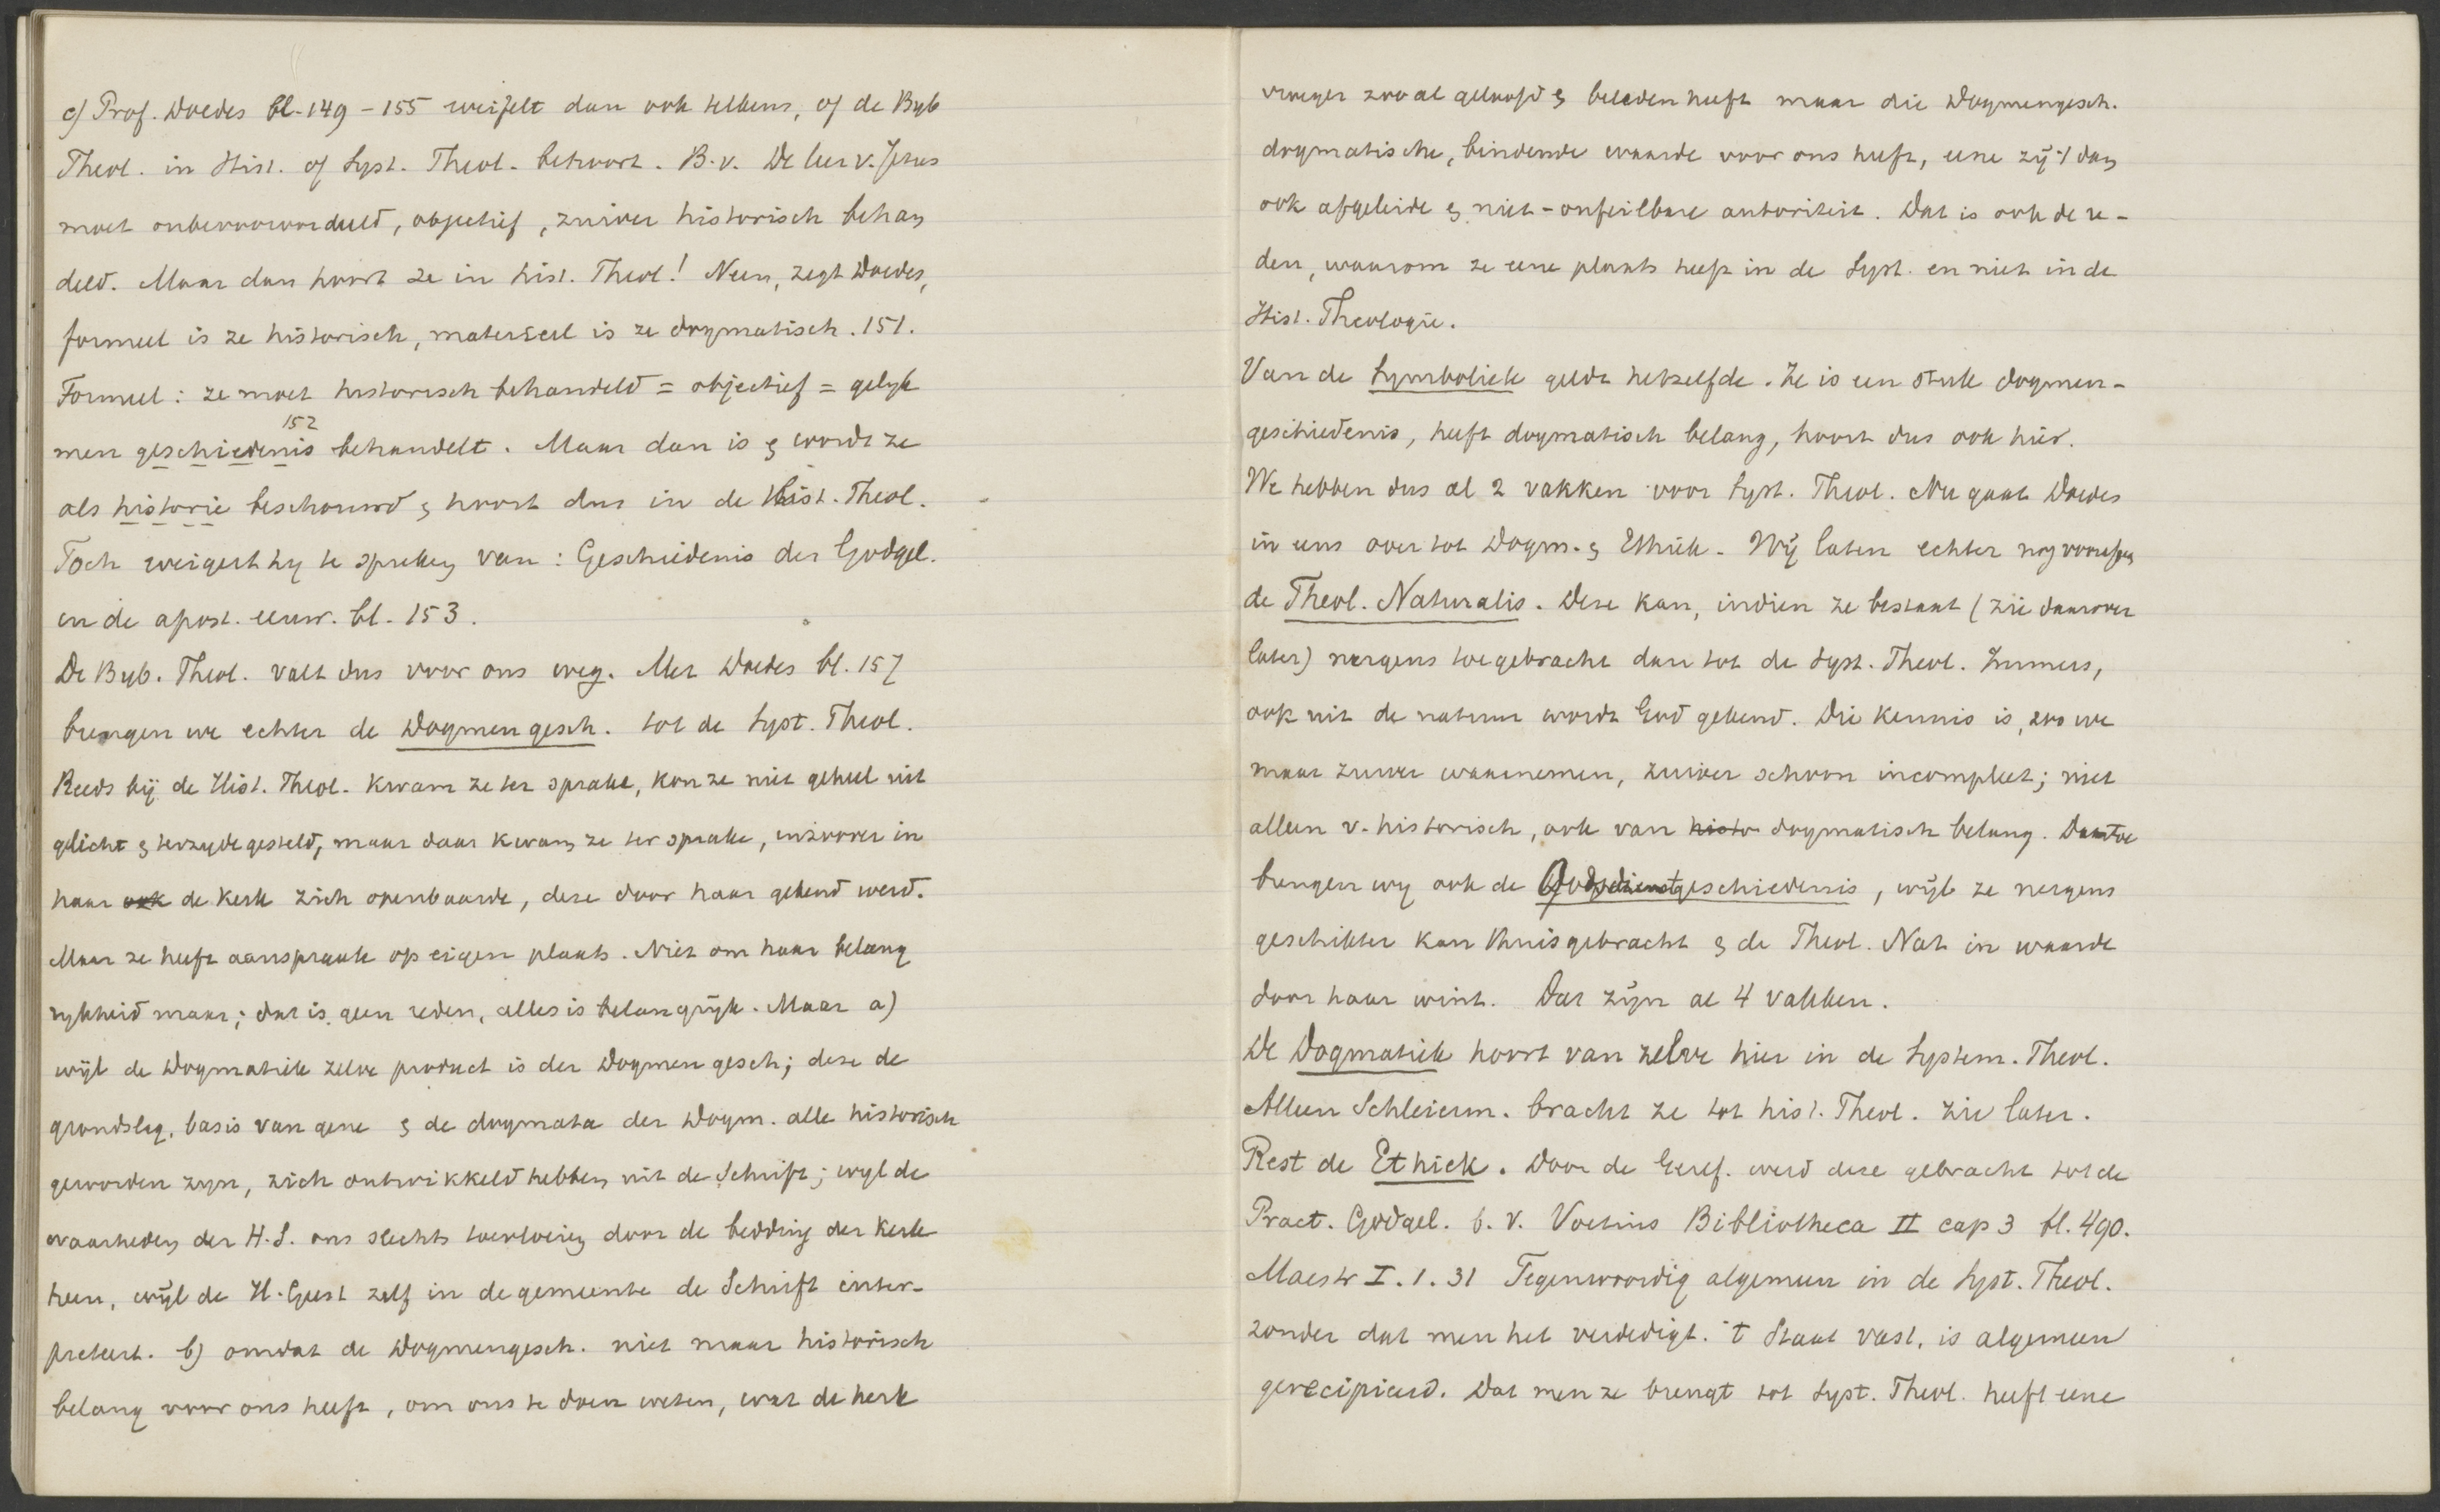 c) Prof. Doedes bl. 149-155 weifelt dan ook telkens, of de Byb
Theol. in Hist. of Syst. Theol. behoort. B.v. De leer v. Jezus
moet onbevooroordeeld, objectief, zuiver historisch behan
deld. Maar dan hoort ze in hist. Theol! Neen, zegt Doedes,
formeel is ze historisch, materieel is ze dogmatisch. 151.
Formeel: ze moet historisch behandeld = objectief = gelyk
152
men geschiedenis behandelt. Maar dan is & wordt ze
als historie beschouwd & hoort dus in de Hist. Theol.
Toch weigert hy te spreken van: Geschiedenis der Godgel.
in de apost. eeuw. bl. 153.
De Byb. Theol. valt dus voor ons weg. Met Doedes bl. 157
brengen we echter de Dogmengesch. tot de Syst. Theol.
Reeds bij de Hist. Theol. kwam ze ter sprake, kon ze niet geheel uit
gelicht & terzyde gesteld, maar daar kwam ze ter sprake, inzoover in
haar ook de kerk zich openbaarde, deze door haar gekend werd.
Maar ze heeft aanspraak op eigen plaats. Niet om haar belang
rykheid maar; dat is geen reden, alles is belangrijk. Maar a)
wijl de Dogmatiek zelve product is der Dogmengesch; deze de
grondslag, basis van gene & de dogmata der Dogm. alle historisch
geworden zyn, zich ontwikkeld hebben uit de Schrift; wyl de
waarheden der H.S. ons slechts toevloeien door de bedding der Kerk
heen, wijl de H. Geest zelf in de gemeente de Schrift inter-
preteert. b) omdat de Dogmengesch. niet maar historisch
belang voor ons heeft, om ons te doen weten, wat de kerk
vroeger zooal geloofd & beleden heeft maar die Dogmengesch.
dogmatische, bindende waarde voor ons heeft, eene zij 't dan
ook afgeleide & niet-onfeilbare autoriteit. Dat is ook de re-
den, waarom ze eene plaats heeft in de Syst. en niet in de
Hist. Theologie.
Van de Symboliek geldt hetzelfde. Ze is een stuk dogmen-
geschiedenis, heeft dogmatisch belang, hoort dus ook hier.
We hebben dus al 2 vakken voor Syst. Theol. Nu gaat Doedes
in eens over tot Dogm. & Ethiek. Wij laten echter nog voorafgaan
de Theol. Naturalis. Deze kan, indien ze bestaat (zie daarover
later) nergens toegebracht dan tot de Syst. Theol. Immers,
ook uit de natuur wordt God gekend. Die kennis is, zoo we
maar zuiver waarnemen, zuiver schoon incompleet; niet
alleen v. historisch, ook van histo dogmatisch belang. Daartoe
brengen wy ook de Godsdienstgeschiedenis, wijl ze nergens
geschikter kan thuisgebracht & de Theol. Nat in waarde
door haar wint. Dat zijn al 4 vakken.
De Dogmatiek hoort van zelve hier in de System. Theol.
Alleen Schleierm. bracht ze tot hist. Theol. zie later.
Rest de Ethiek. Door de Geref. werd deze gebracht tot de
Pract. Godgel. b.v. Voetius Bibliotheca II cap 3 bl. 490.
Maestr I.1.31 Tegenwoordig algemeen in de Syst. Theol.
zonder dat men het verdedigt. 't Staat vast, is algemeen
gerecipieerd. Dat men ze brengt tot Syst. Theol. heeft eene